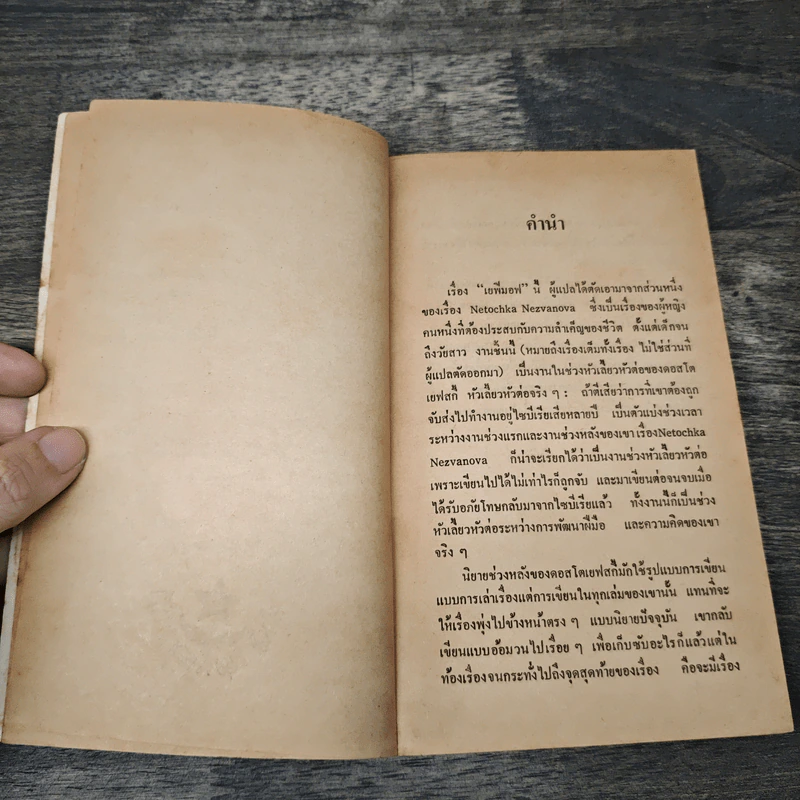 คำนำ
เรื่อง “เยฟีมอฟ” นี้ ผู้แปลได้ตัดเอามาจากส่วนหนึ่ง
ของเรื่อง Netochka Nezvanova ซึ่งเป็นเรื่องของผู้หญิง
คนหนึ่งที่ต้องประสบกับความลำเค็ญของชีวิต ตั้งแต่เด็กจน
ถึงวัยสาว งานชิ้นนี้ (หมายถึงเรื่องเต็มทั้งเรื่อง ไม่ใช่ส่วนที่
ผู้แปลตัดออกมา) เป็นงานในช่วงหัวเลี้ยวหัวต่อของดอสโต
เยฟสกี้ หัวเลี้ยวหัวต่อจริง ๆ : ถ้าตีเสียว่าการที่เขาต้องถูก
จับส่งไปทำงานอยู่ไซบีเรียเสียหลายปี เป็นตัวแบ่งช่วงเวลา
ระหว่างงานช่วงแรกและงานช่วงหลังของเขา เรื่องNetochka
Nezvanova ก็น่าจะเรียกได้ว่าเป็นงานช่วงหัวเลี้ยวหัวต่อ
เพราะเขียนไปได้ไม่เท่าไรก็ถูกจับ และมาเขียนต่อจนจบเมื่อ
ได้รับอภัยโทษกลับมาจากไซบีเรียแล้ว ทั้งงานนี้ก็เป็นช่วง
หัวเลี้ยวหัวต่อระหว่างการพัฒนาฝีมือ และความคิดของเขา
จริง ๆ
นิยายช่วงหลังของดอสโตเยฟสกี้มักใช้รูปแบบการเขียน
แบบการเล่าเรื่องแต่การเขียนในทุกเล่มของเขานั้น แทนที่จะ
ให้เรื่องพุ่งไปข้างหน้าตรง ๆ แบบนิยายปัจจุบัน เขากลับ
เขียนแบบอ้อมวนไปเรื่อย ๆ เพื่อเก็บซับอะไรก็แล้วแต่ใน
ท้องเรื่องจนกระทั่งไปถึงจุดสุดท้ายของเรื่อง คือจะมีเรื่อง